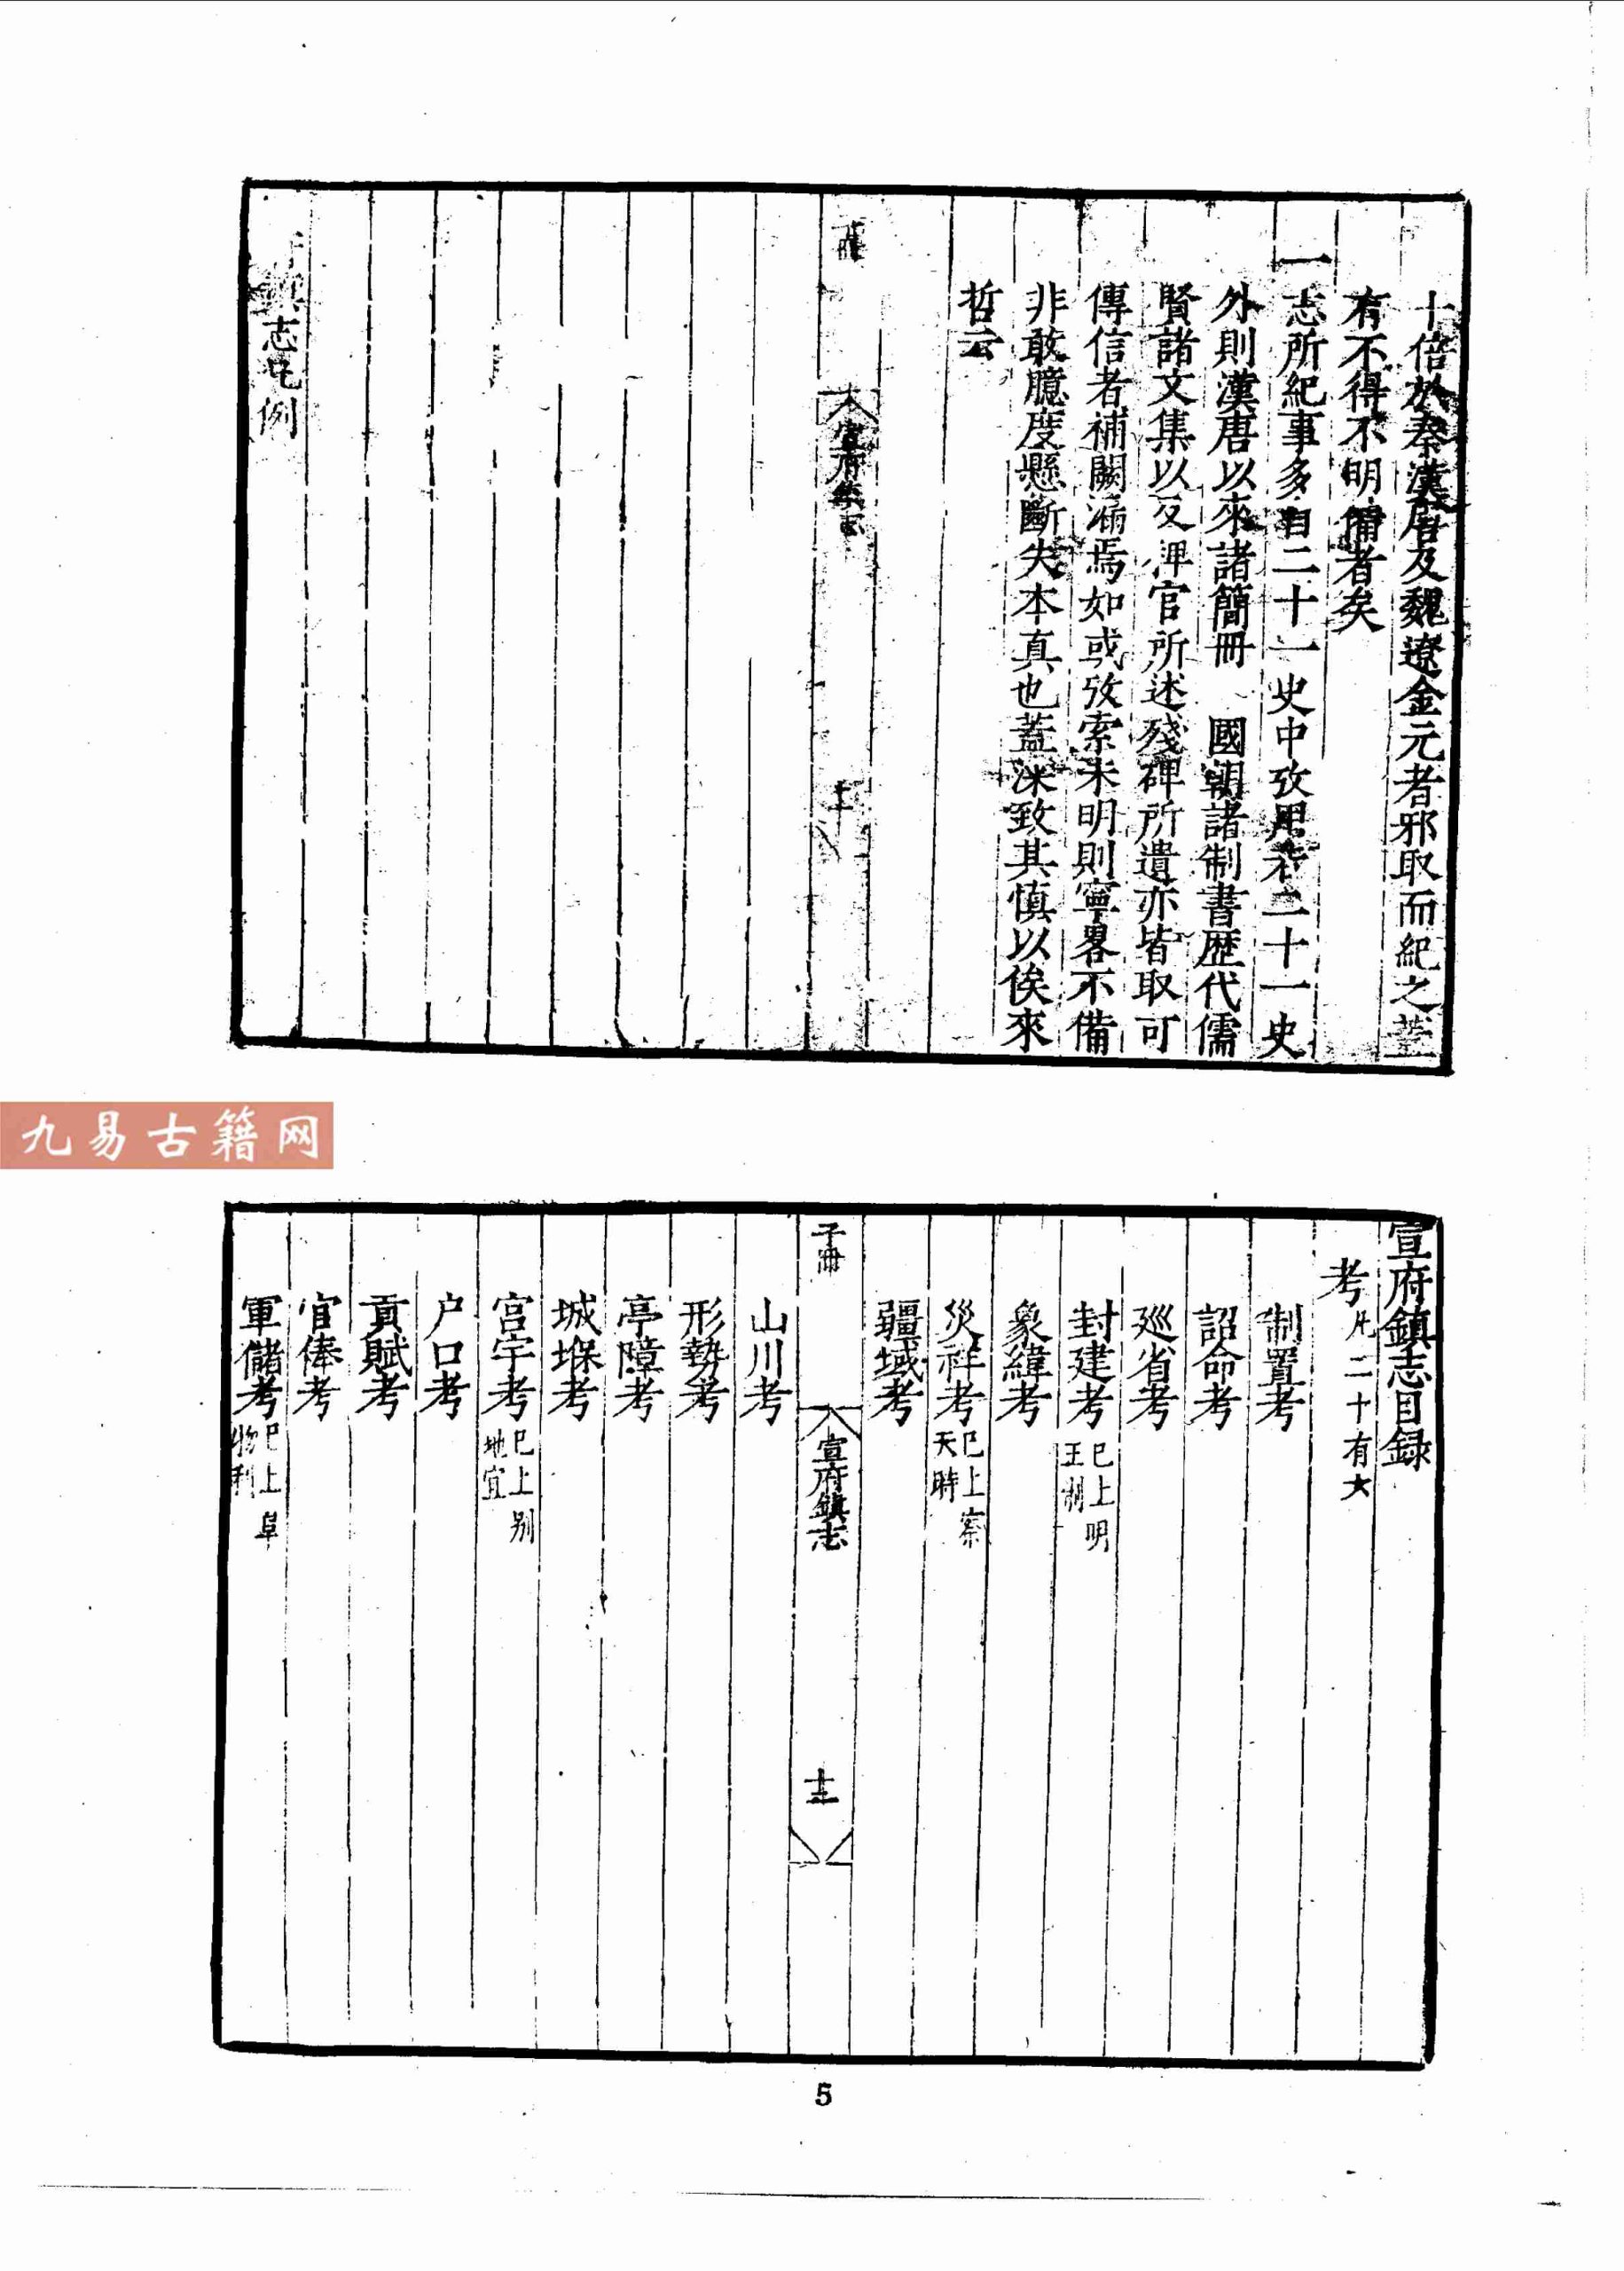 十倍於秦漢唐及魏遼金元者邪取而紀之蓋
有不得不明備者矣
一志所紀事多自二十一史中攷用於二十一史
外則漢唐以來諸簡冊　國朝諸制書歷代儒
賢諸文集以及渒官所述殘碑所遺亦皆取可
傳信者補闕漏焉如或攷索未明則寧畧不備
非敢臆度懸斷失本真也蓋深致其慎以俟來
哲云
冊
宣府鎮志
鎮志凡例
九易古籍网
宣府鎮志目録
考凡二十有六
制置考
詔命考
廵省考
封建考已上明王制
象緯考
災祥考已上察天時
疆域考
子冊
宣府鎮志
十三
山川考
形勢考
亭障考
城堡考
宫宇考已上别地宜
户口考
貢賦考
官俸考
軍儲考已上阜物利
5